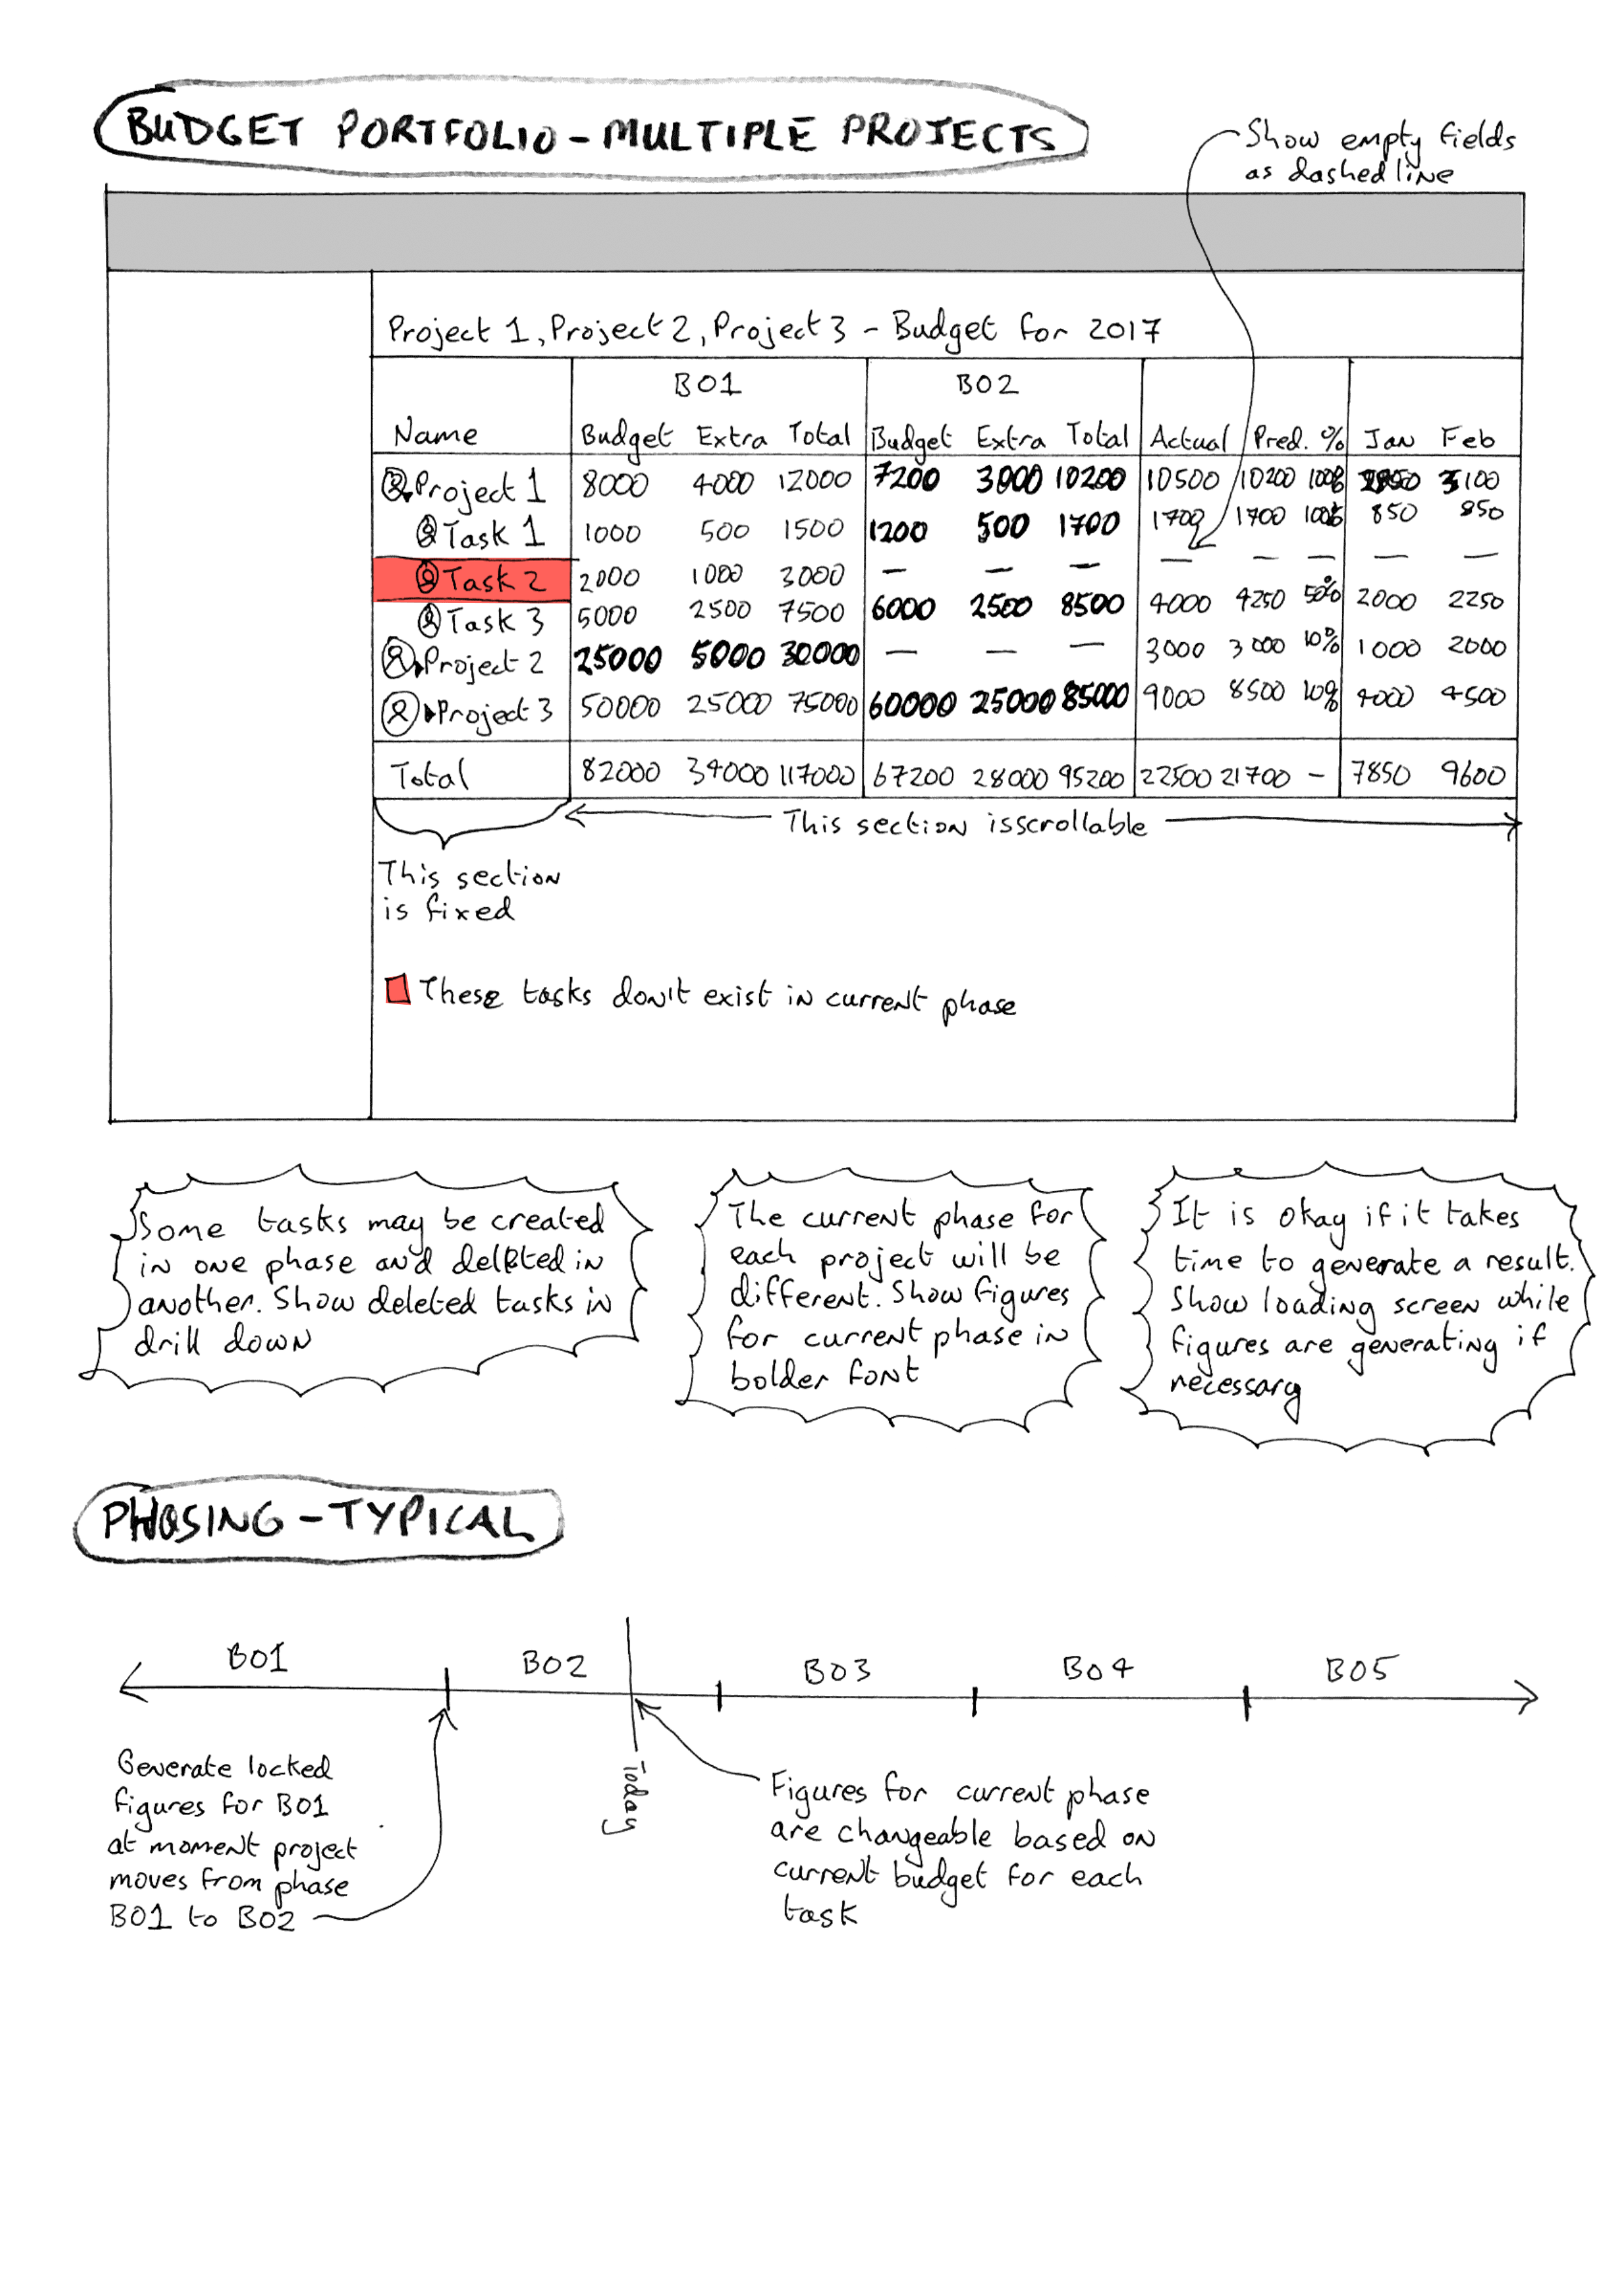 BUDGET PORTFOLIO - MULTIPLE PROJECTS
Show empty fields
as dashed line
Project 1, Project 2, Project 3 - Budget for 2017
B01 B02
Name Budget Extra Total Budget Extra Total Actual Pred. % Jan Feb
Project 1 8000 4000 12000 7200 3000 10200 10500 10200 100% 3100
Task 1 1000 500 1500 1200 500 1700 1700 1700 100% 850 850
Task 2 2000 1000 3000 — — — — — — — —
Task 3 5000 2500 7500 6000 2500 8500 4000 4250 50% 2000 2250
Project 2 25000 5000 30000 — — — 3000 3000 10% 1000 2000
Project 3 50000 25000 75000 60000 25000 85000 9000 8500 10% 4000 4500
Total 82000 34000 117000 67200 28000 95200 22500 21700 - 7850 9600
This section isscrollable
This section
is fixed
These tasks don't exist in current phase
Some tasks may be created
in one phase and deleted in
another. Show deleted tasks in
drill down
The current phase for
each project will be
different. Show figures
for current phase in
bolder font
It is okay if it takes
time to generate a result.
Show loading screen while
figures are generating if
necessary
PHASING - TYPICAL
B01 B02 B03 B04 B05
Today
Generate locked
figures for B01
at moment project
moves from phase
B01 to B02
Figures for current phase
are changeable based on
current budget for each
task